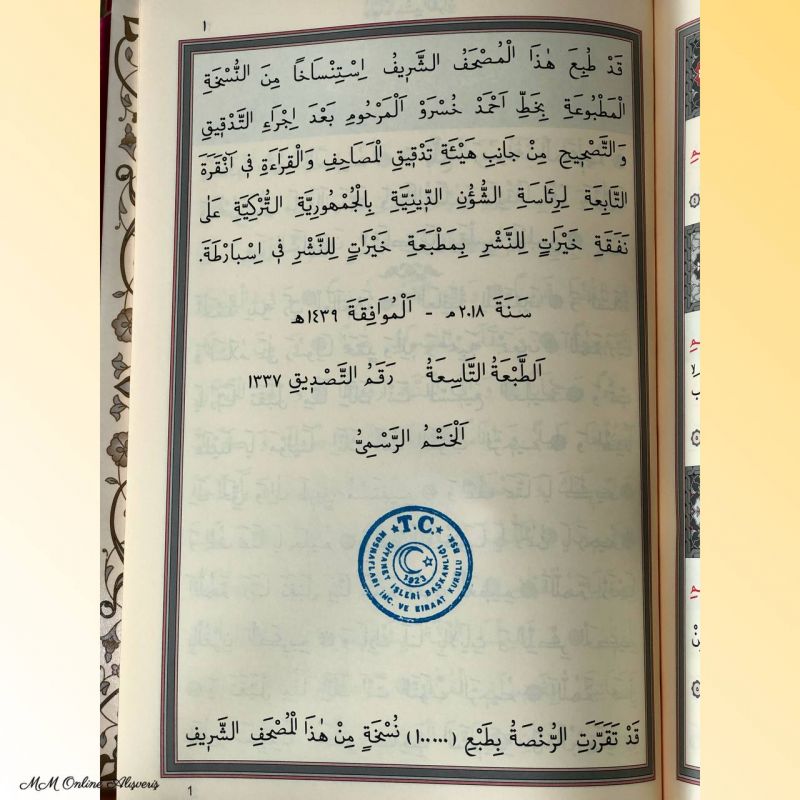 ١
قَدْ طُبِعَ هٰذَا الْمُصْحَفُ الشَّرِيفُ اِسْتِنْسَاخًا مِنَ النُّسْخَةِ
الْمَطْبُوعَةِ بِخَطِّ اَحْمَدْ خُسْرَوْ اَلْمَرْحُومِ بَعْدَ اِجْرَاءِ التَّدْقِيقِ
وَالتَّصْحِيحِ مِنْ جَانِبِ هَيْئَةِ تَدْقِيقِ الْمَصَاحِفِ وَالْقِرَاءَةِ فِي آنْقَرَةَ
التَّابِعَةِ لِرِئَاسَةِ الشُّؤُنِ الدِّينِيَّةِ بِالْجُمْهُورِيَّةِ التُّرْكِيَّةِ عَلٰى
نَفَقَةِ خَيْرَاتٍ لِلنَّشْرِ بِمَطْبَعَةِ خَيْرَاتٍ لِلنَّشْرِ فِي اِسْبَارْطَةَ.
سَنَةَ ٢٠١٨م - اَلْمُوَافِقَةَ ١٤٣٩ه
اَلطَّبْعَةُ التَّاسِعَةُ رَقَمُ التَّصْدِيقِ ١٣٣٧
اَلْخَتْمُ الرَّسْمِيُّ
T.C.
DİYANET İŞLERİ BAŞKANLIĞI
MUSHAFLARI İNC. VE KIRAAT KURULU BŞK.
1923
قَدْ تَقَرَّرَتِ الرُّخْصَةُ بِطَبْعِ (١٠٠٠٠٠) نُسْخَةٍ مِنْ هٰذَا الْمُصْحَفِ الشَّرِيفِ
1
MM Online Alışveriş